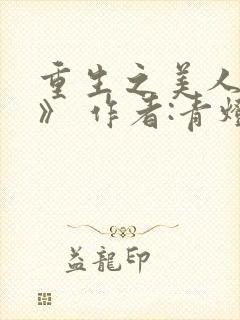 重生之美人
》 作者:青燈
益龍印